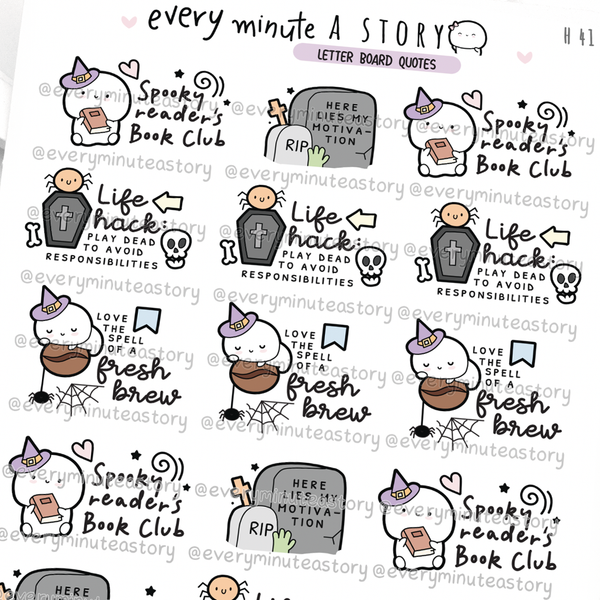 every minute A STORY
H 41
LETTER BOARD QUOTES
Spooky
reader's
Book Club
HERE
LIES MY
MOTIVA-
TION
RIP
Spooky
reader's
Book Club
@everyminuteastory
@everyminuteastory
@everyminuteastory
Life
hack:
PLAY DEAD
TO AVOID
RESPONSIBILITIES
Life
hack:
PLAY DEAD
TO AVOID
RESPONSIBILITIES
Life
hack:
PLAY DEAD
TO AVOID
RESPONSIBILITIES
@everyminuteastory
@everyminuteastory
@everyminuteastory
LOVE
THE
SPELL
OF A
fresh
brew
LOVE
THE
SPELL
OF A
fresh
brew
LOVE
THE
SPELL
OF A
fresh
brew
@everyminuteastory
@everyminuteastory
@everyminuteastory
Spooky
reader's
Book Club
HERE
LIES MY
MOTIVA-
TION
RIP
Spooky
reader's
Book Club
@everyminuteastory
@everyminuteastory
@everyminuteastory
HERE
Life